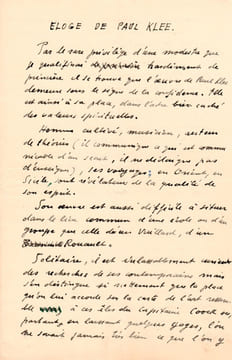 ELOGE DE PAUL KLEE.
Par le rare privilège d'une modestie que
je qualifierai hardiment de
première il se trouve que l'œuvre de Paul Klee
demeure sous le signe de la confidence. Elle
est ainsi à sa place, dans l'arbre bien caché
des valeurs spirituelles.
Homme cultivé, musicien, auteur
de théories (il communique ce qui est somme
toute d'un secret, il ne dédaigne pas
d'enseigner), ses voyages, en Orient, en
Sicile, sont révélateurs de la qualité de
son esprit.
Son œuvre est aussi difficile à situer
dans le lieu commun d'une école ou d'un
groupe que celle d'un Vuillard, d'un
Rouault.
Solitaire, il est inlassablement
des recherches de ses contemporains mais
s'en distingue si nettement que la place
qu'on lui accorde sur la carte de l'art
à ces îles du Capitaine Cook où,
partant, en laissant quelques gages, l'on
ne savait jamais très bien ce que l'on y